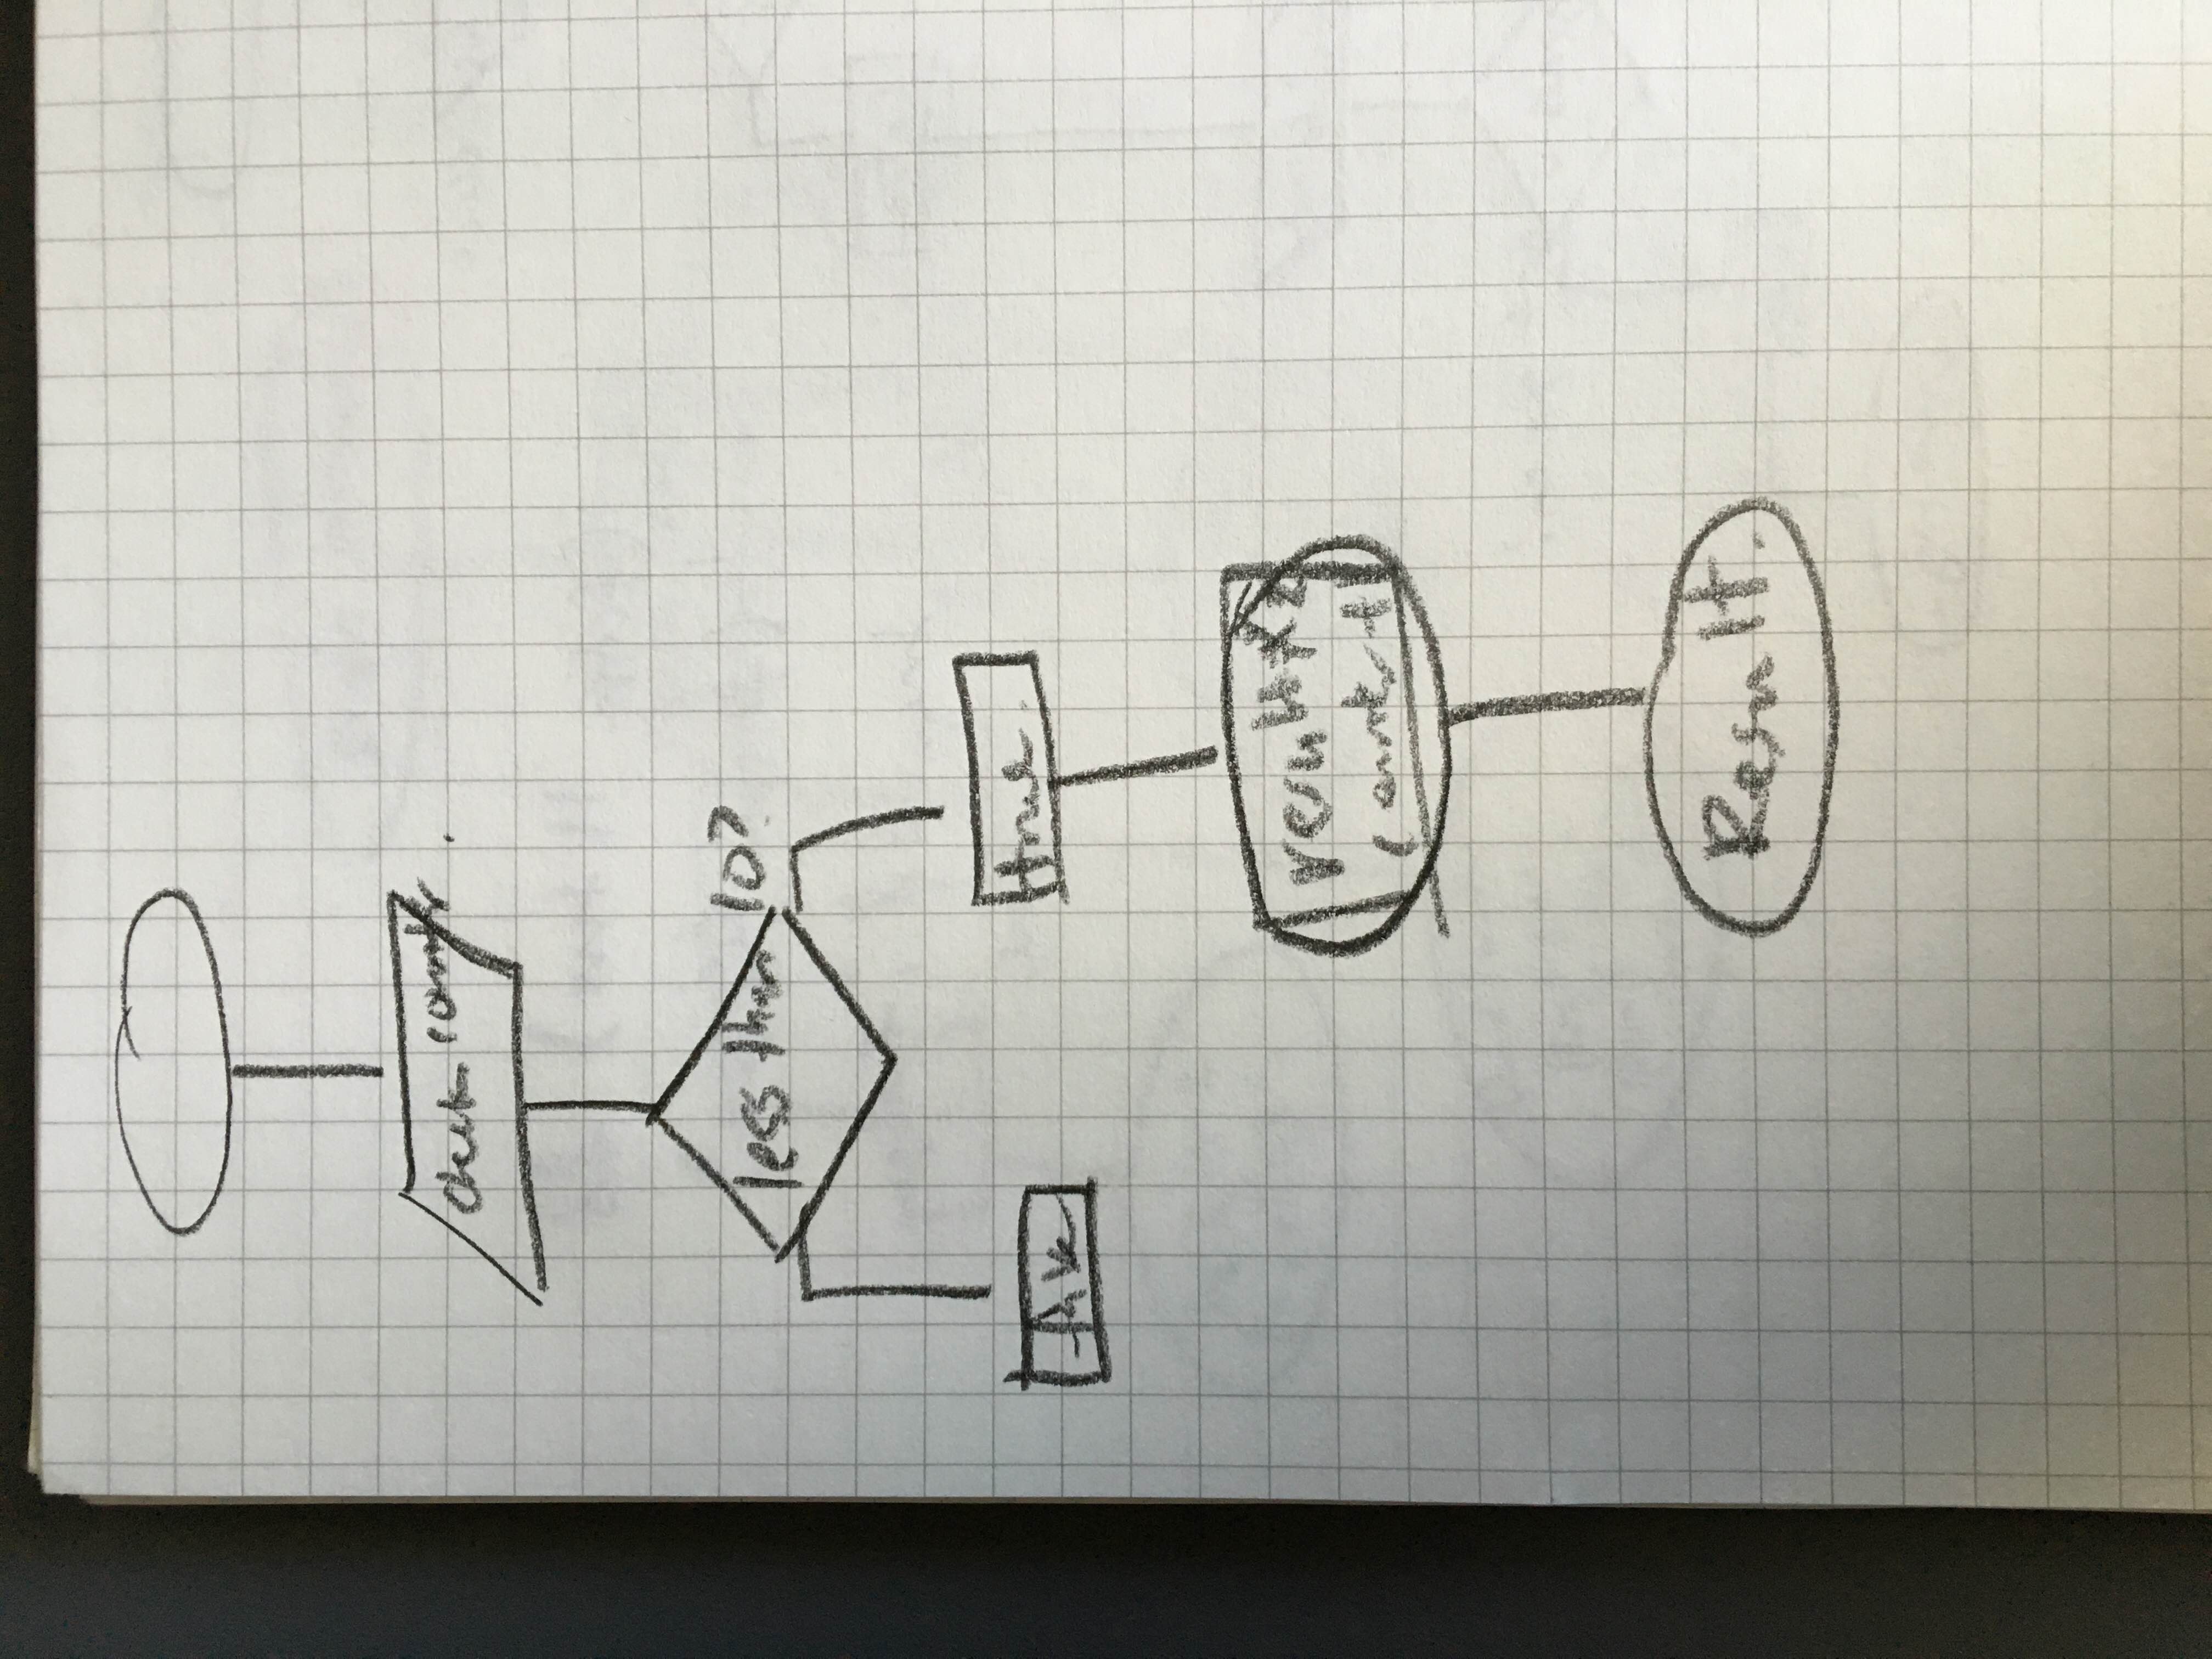 check counter.
less than 10?
false
true
result *2
counter +1
Result.